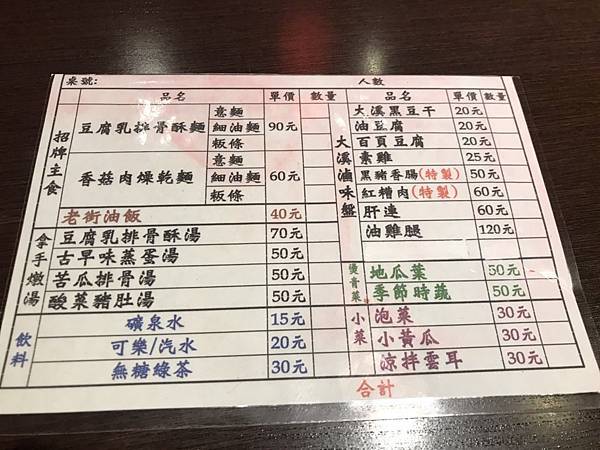 桌號: 人數
品名 單價 數量 品名 單價 數量
招牌主食
豆腐乳排骨酥麵 意麵 細油麵 粄條 90元
香菇肉燥乾麵 意麵 細油麵 粄條 60元
老街油飯 40元
拿手燉湯
豆腐乳排骨酥湯 70元
古早味蒸蛋湯 50元
苦瓜排骨湯 50元
酸菜豬肚湯 50元
飲料
礦泉水 15元
可樂/汽水 20元
無糖綠茶 30元
大溪滷味盤
大溪黑豆干 20元
油豆腐 20元
百頁豆腐 20元
素雞 25元
黑豬香腸(特製) 50元
紅糟肉(特製) 60元
肝連 60元
油雞腿 120元
燙青菜
地瓜葉 50元
季節時蔬 50元
小菜
泡菜 30元
小黃瓜 30元
涼拌雲耳 30元
合計